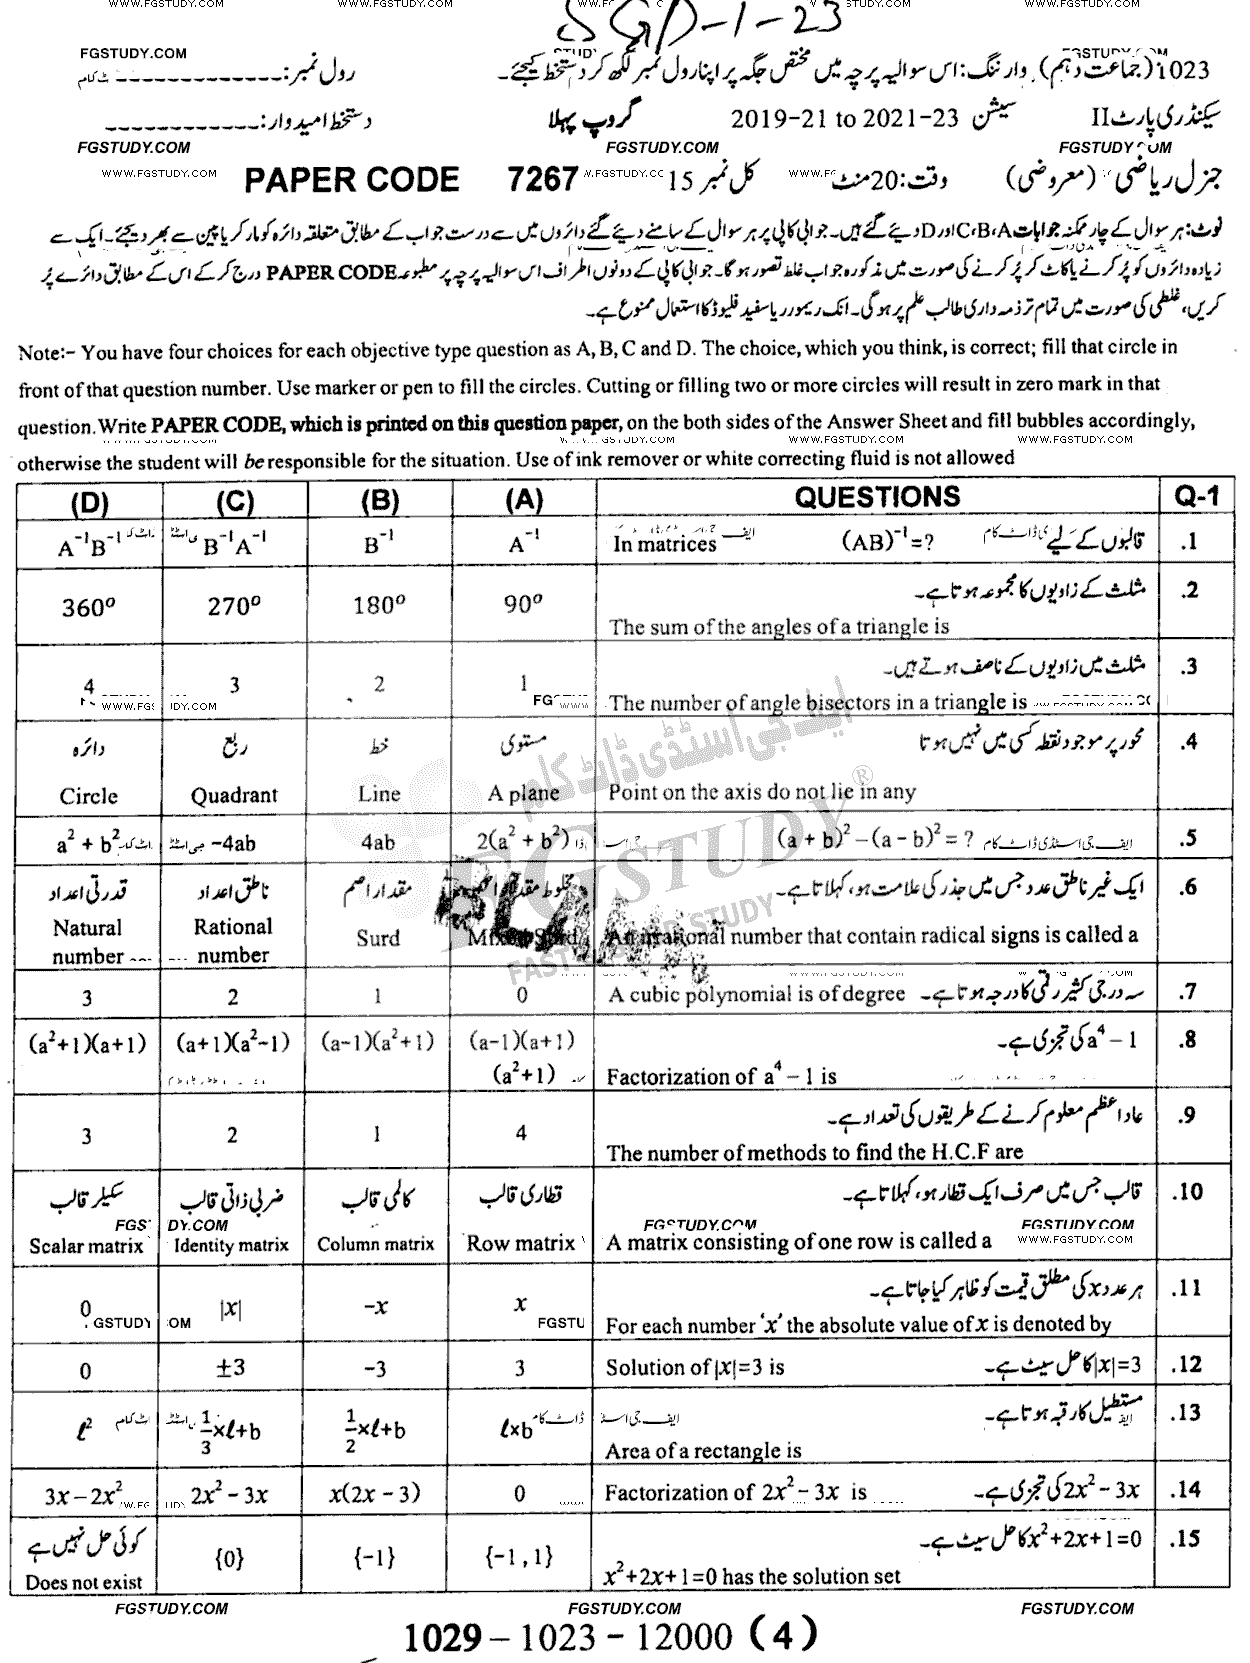 SGD-1-23
1023 (جماعت دہم) وارننگ: اس سوالیہ پرچہ میں مختص جگہ پر اپنا رول نمبر لکھ کر دستخط کیجئے۔ رول نمبر: -------------
سیکنڈری پارٹ II سیشن 2019-21 to 2021-23 گروپ پہلا دستخط امیدوار: -------------
FGSTUDY.COM FGSTUDY.COM
جنرل ریاضی (معروضی) وقت: 20 منٹ کل نمبر 15 PAPER CODE 7267
نوٹ: ہر سوال کے چار ممکنہ جوابات A، B، C اور D دیے گئے ہیں۔ جوابی کاپی پر ہر سوال کے سامنے دیے گئے دائروں میں سے درست جواب کے مطابق متعلقہ دائرہ کو مارکر یا پین سے بھر دیجئے۔ ایک سے
زیادہ دائروں کو پُر کرنے یا کاٹ کر پُر کرنے کی صورت میں مذکورہ جواب غلط تصور ہوگا۔ جوابی کاپی کے دونوں اطراف اس سوالیہ پرچہ پر مطبوعہ PAPER CODE درج کر کے اس کے مطابق دائرے پُر
کریں، غلطی کی صورت میں تمام تر ذمہ داری طالب علم پر ہوگی۔ انک ریموور یا سفید فلیوڈ کا استعمال ممنوع ہے۔
Note:- You have four choices for each objective type question as A, B, C and D. The choice, which you think, is correct; fill that circle in
front of that question number. Use marker or pen to fill the circles. Cutting or filling two or more circles will result in zero mark in that
question. Write PAPER CODE, which is printed on this question paper, on the both sides of the Answer Sheet and fill bubbles accordingly,
otherwise the student will be responsible for the situation. Use of ink remover or white correcting fluid is not allowed
(D) (C) (B) (A) QUESTIONS Q-1
A⁻¹B⁻¹ B⁻¹A⁻¹ B⁻¹ A⁻¹ In matrices (AB)⁻¹=? قالبوں کے لیے .1
مثلث کے زاویوں کا مجموعہ ہوتا ہے۔ .2
360° 270° 180° 90° The sum of the angles of a triangle is
مثلث میں زاویوں کے ناصف ہوتے ہیں۔ .3
4 3 2 1 The number of angle bisectors in a triangle is
دائرہ ربع خط مستوی محور پر موجود نقطہ کسی میں نہیں ہوتا .4
Circle Quadrant Line A plane Point on the axis do not lie in any
a² + b² -4ab 4ab 2(a² + b²) (a + b)² - (a - b)² = ? .5
قدرتی اعداد ناطق اعداد مقدار اصم مخلوط مقدار اصم ایک غیر ناطق عدد جس میں جذر کی علامت ہو، کہلاتا ہے۔ .6
Natural number Rational number Surd Mixed Surd An irrational number that contain radical signs is called a
3 2 1 0 A cubic polynomial is of degree سہ درجی کثیر رقمی کا درجہ ہوتا ہے۔ .7
(a²+1)(a+1) (a+1)(a²-1) (a-1)(a²+1) (a-1)(a+1) a⁴ - 1 کی تجزی ہے۔ .8
(a²+1) Factorization of a⁴ - 1 is
عاد اعظم معلوم کرنے کے طریقوں کی تعداد ہے۔ .9
3 2 1 4 The number of methods to find the H.C.F are
سکیلر قالب ضربی ذاتی قالب کالمی قالب قطاری قالب قالب جس میں صرف ایک قطار ہو، کہلاتا ہے۔ .10
Scalar matrix Identity matrix Column matrix Row matrix A matrix consisting of one row is called a
ہر عدد x کی مطلق قیمت کو ظاہر کیا جاتا ہے۔ .11
0 |x| -x x For each number 'x' the absolute value of x is denoted by
0 ±3 -3 3 Solution of |x|=3 is |x|=3 کا حل سیٹ ہے۔ .12
مستطیل کا رقبہ ہوتا ہے۔ .13
ℓ² 1/3×ℓ+b 1/2×ℓ+b ℓ×b Area of a rectangle is
3x - 2x² 2x² - 3x x(2x - 3) 0 Factorization of 2x² - 3x is 2x² - 3x کی تجزی ہے۔ .14
کوئی حل نہیں ہے x²+2x+1=0 کا حل سیٹ ہے۔ .15
Does not exist {0} {-1} {-1, 1} x²+2x+1=0 has the solution set
FGSTUDY.COM FGSTUDY.COM FGSTUDY.COM
1029 - 1023 - 12000 (4)